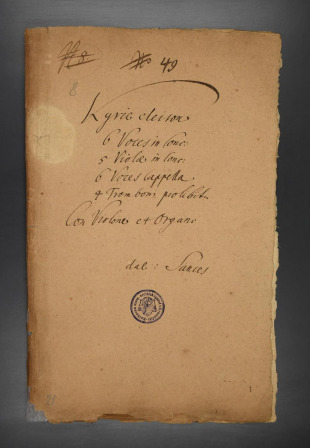 No 49
8
Kyrie eleison
6 Voces in Conc:
5 Viole in Conc:
6 Voces Cappella
4 Trombon: pro libit:
Con Violone et Organo
dal: Sances